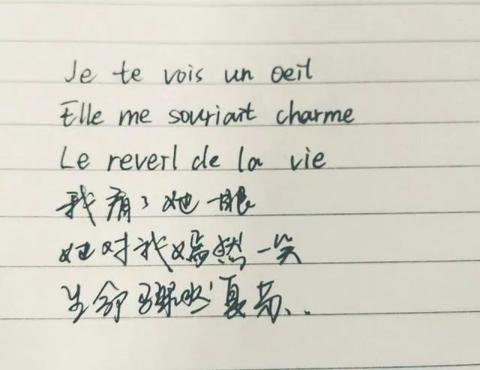 Je te vois un oeil
Elle me souriait charme
Le reverl de la vie
我了她一眼
她对我嫣然一笑
生命骤然复苏...